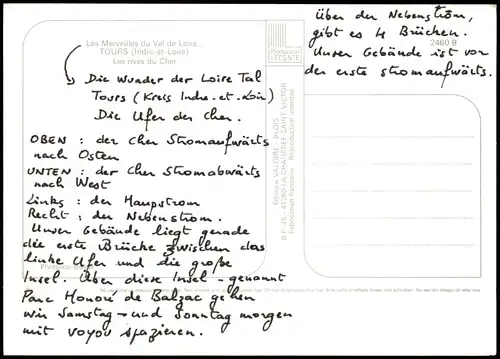 Les Merveilles du Val de Loire...
TOURS (Indre-et-Loire)
Les rives du Cher
Die Wunder der Loire Tal
Tours (Kreis Indre.et.Loir)
Die Ufer des Cher.
OBEN : der Cher Stromaufwärts
nach Osten
UNTEN : der Cher Stromabwärts
nach West
Links : der Haupstrom
Recht : der Nebenstrom.
Unser Gebäude liegt gerade
die erste Brüche zwischen das
linke Ufer und die große
Insel. Über diese Insel - genannt
Parc Honoré de Balzac gehen
wir Samstag - und Sonntag morgen
mit voyou spazieren.
über der Nebenström,
gibt es 4 Brüchen.
Unser Gebäude ist vor
der erste stromaufwärts.
2460 B
Editions VALOIRE - BLOIS
B.P. 45 - 41260 LA CHAUSSÉE-SAINT-VICTOR
Fabrication française - Reproduction interdite